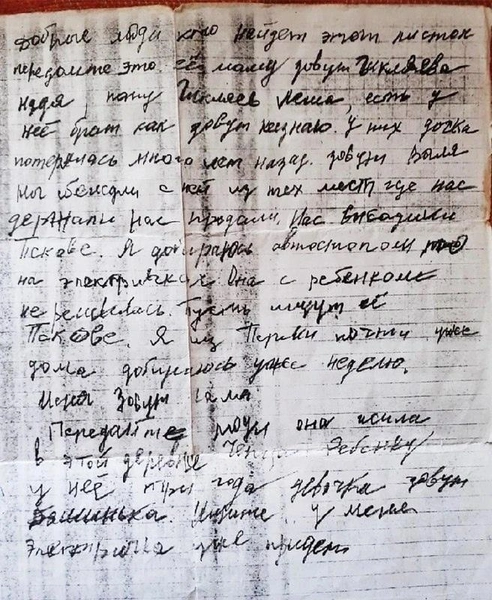 Добрые люди кто найдет этот листок
передайте это. её маму зовут Чикляева
Надя, папу Чикляев Леша, есть у
неё брат как зовут незнаю. У них дочка
потерялась много лет назад. зовут Валя
Мы бежали с ней из тех мест где нас
держали нас продали, Нас
Пскове. Я добираюсь автостопом
на электричках Она с ребенком
не решилась. Пусть ищут её
Пскове. Я из Перми почти уже
дома добираюсь уже неделю.
Меня Зовут
Передайте люди она жила
в этой деревне Ребенку
у неё три года девочка зовут
Машинька. Ищите, у меня
электричка уже придет